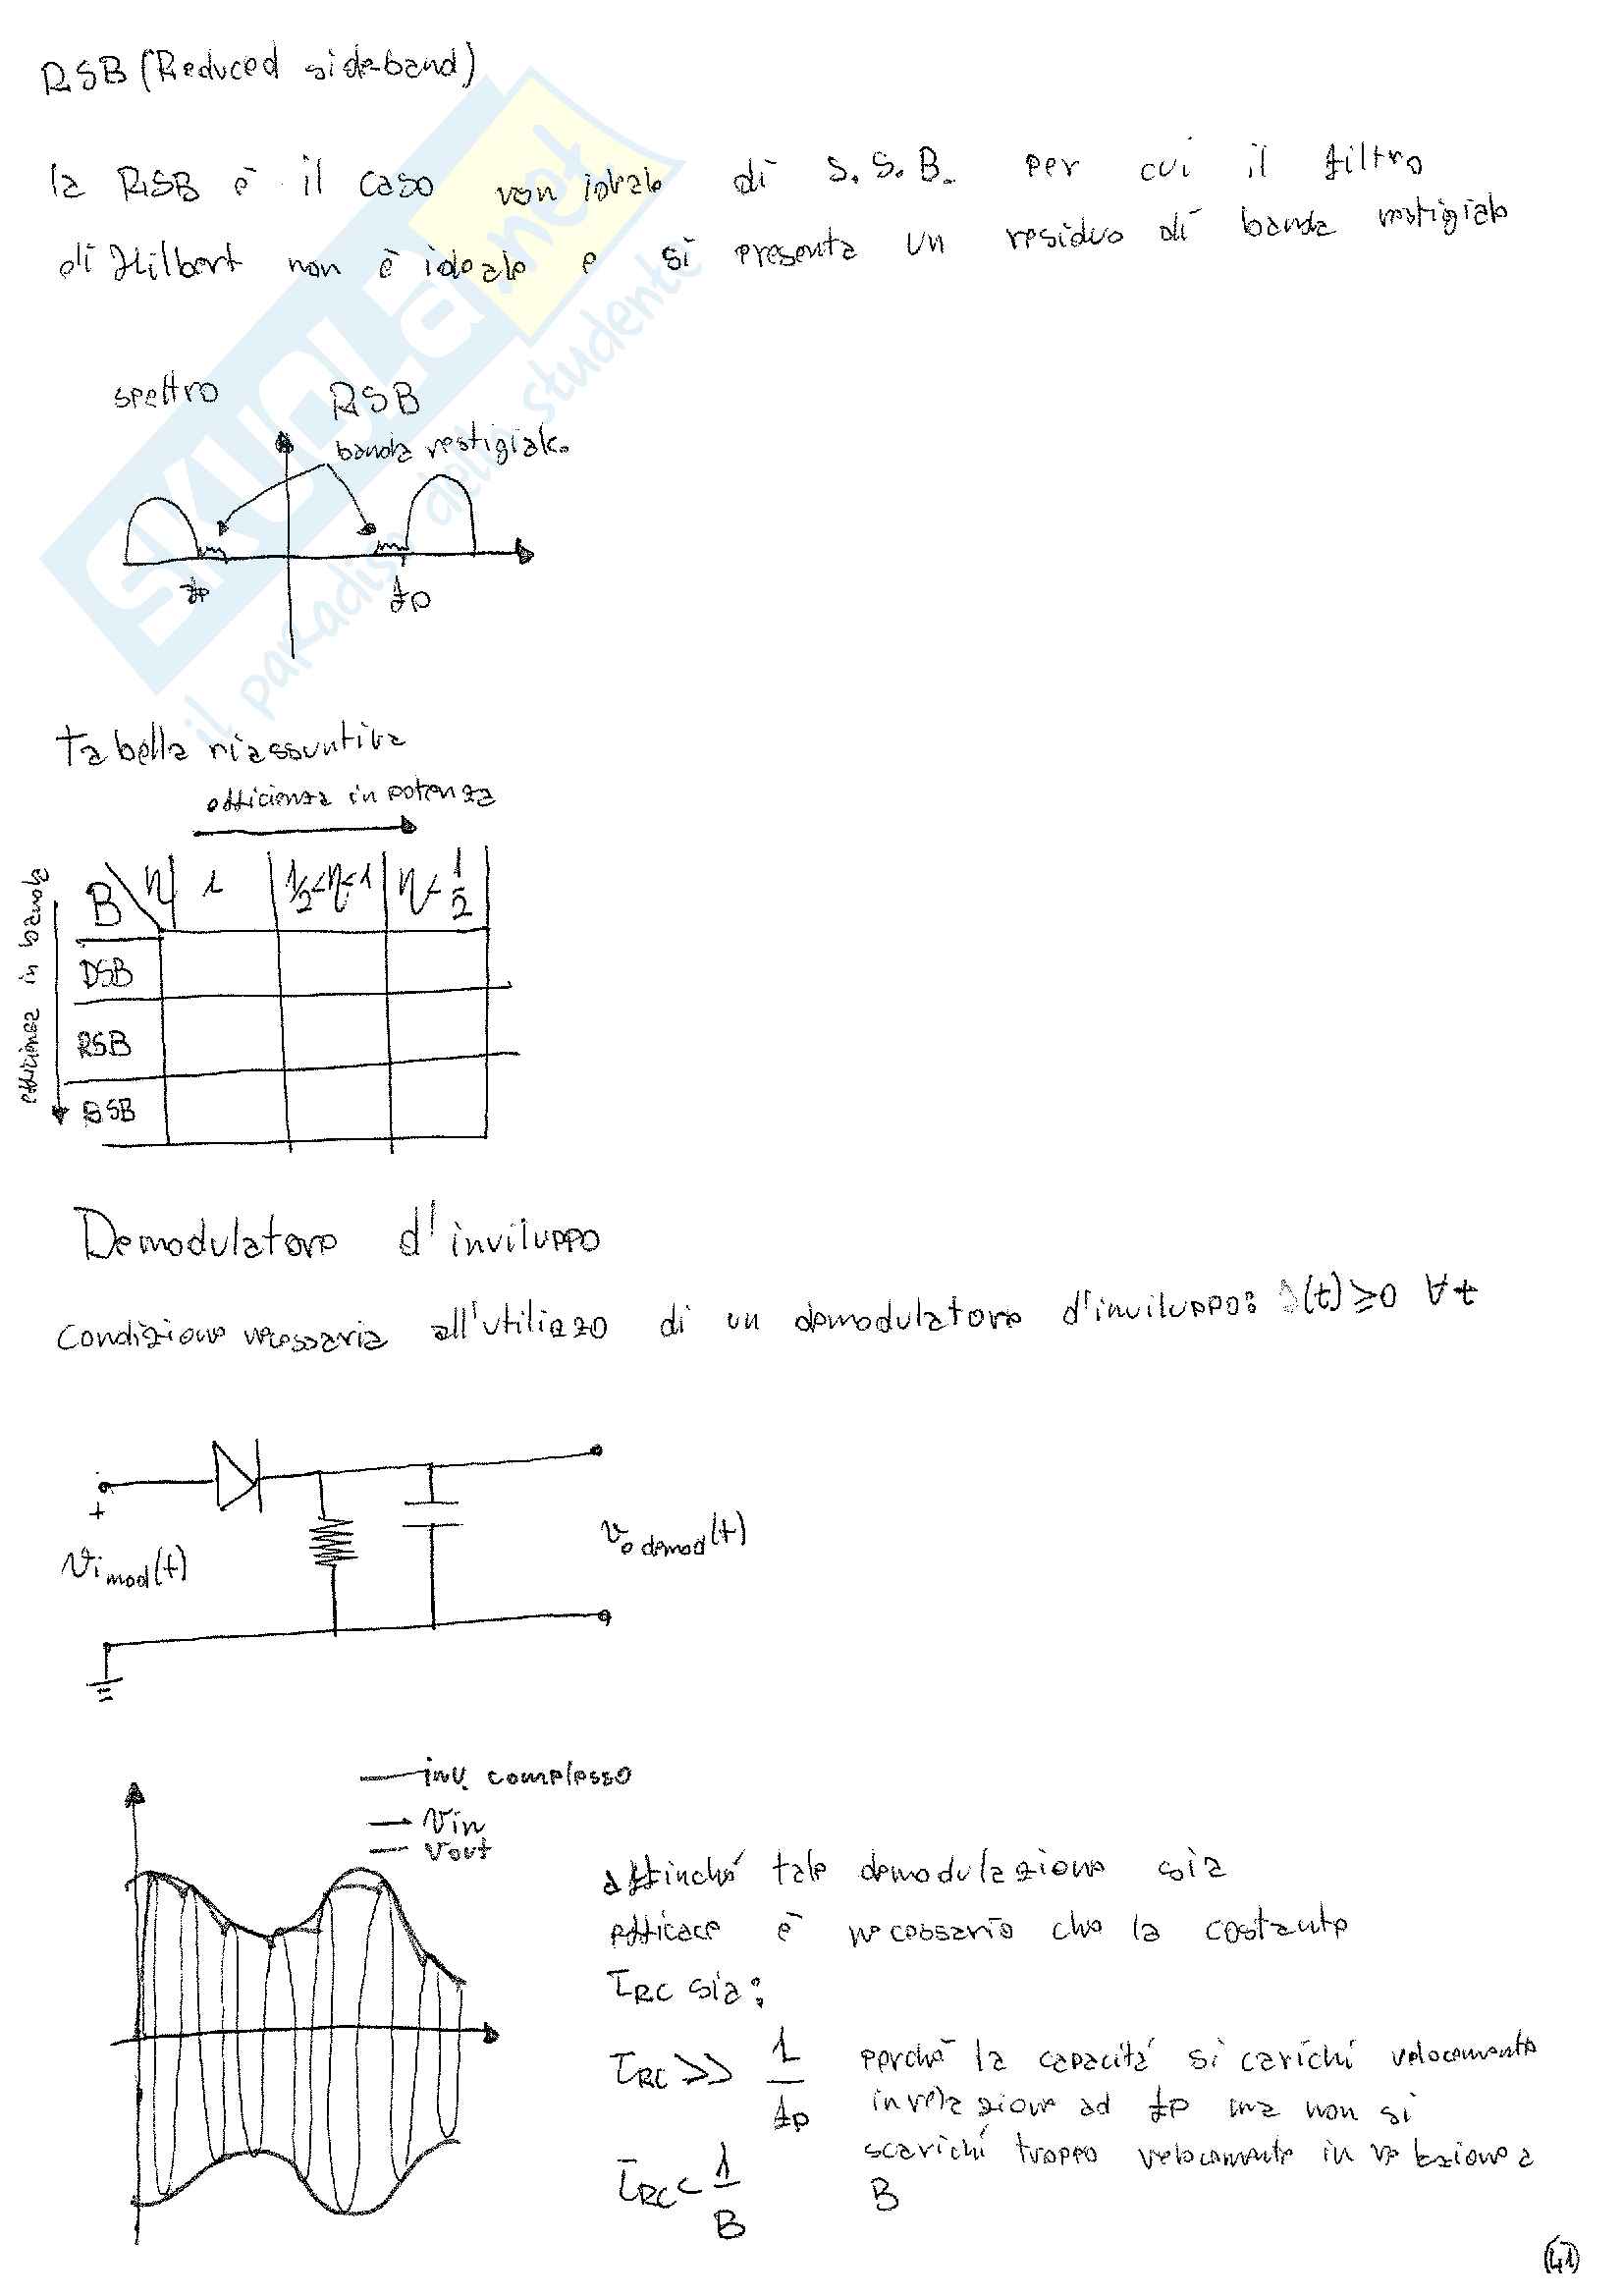 RSB (Reduced sideband)
la RSB è il caso non ideale di S.S.B. per cui il filtro
di Hilbert non è ideale e si presenta un residuo di banda vestigiale
spettro RSB
banda vestigiale
fp fp
tabella riassuntiva
efficienza in potenza
efficienza in banda
B η 1 1/2<η<1 η<1/2
DSB
RSB
SSB
Demodulatore d'inviluppo
condizione necessaria all'utilizzo di un demodulatore d'inviluppo: (t)≥0 ∀t
+
vi mod(t)
vo demod(t)
inv. complesso
vin
vout
affinché tale demodulazione sia
efficace è necessario che la costante
τRC sia:
τRC >> 1/fp perché la capacitá si carichi velocemente
in relazione ad fp ma non si
scarichi troppo velocemente in relazione a
τRC < 1/B B
(41)
SKUOLA.net
il paradiso dello studente